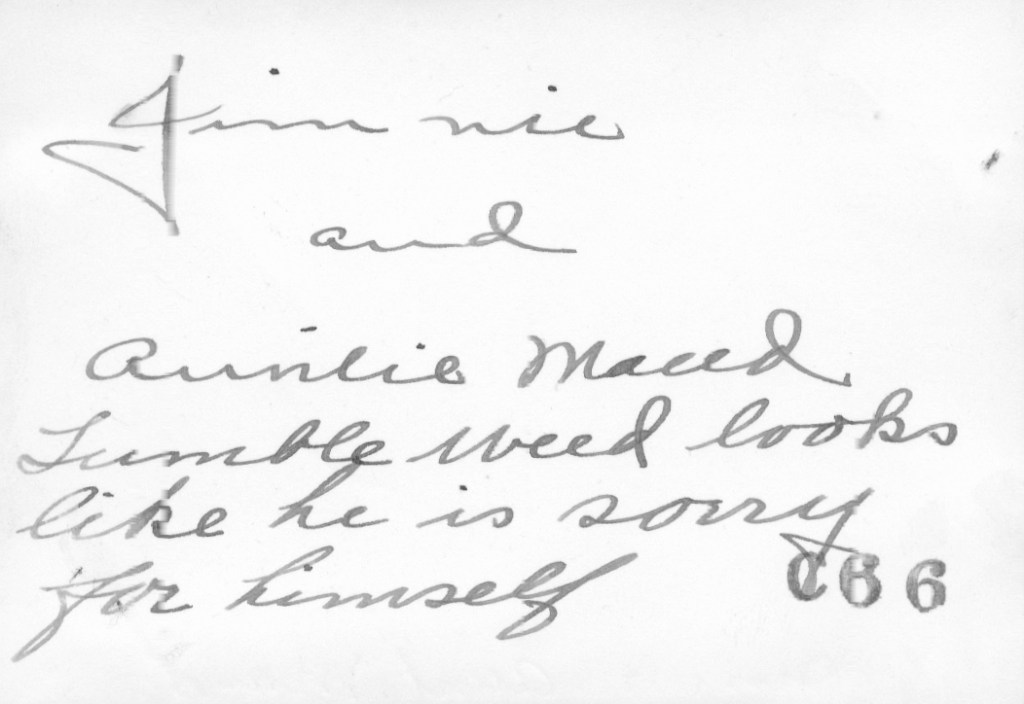 Jimmie
and
Auntie Maud
Tumble Weed looks
like he is sorry
for himself
C66